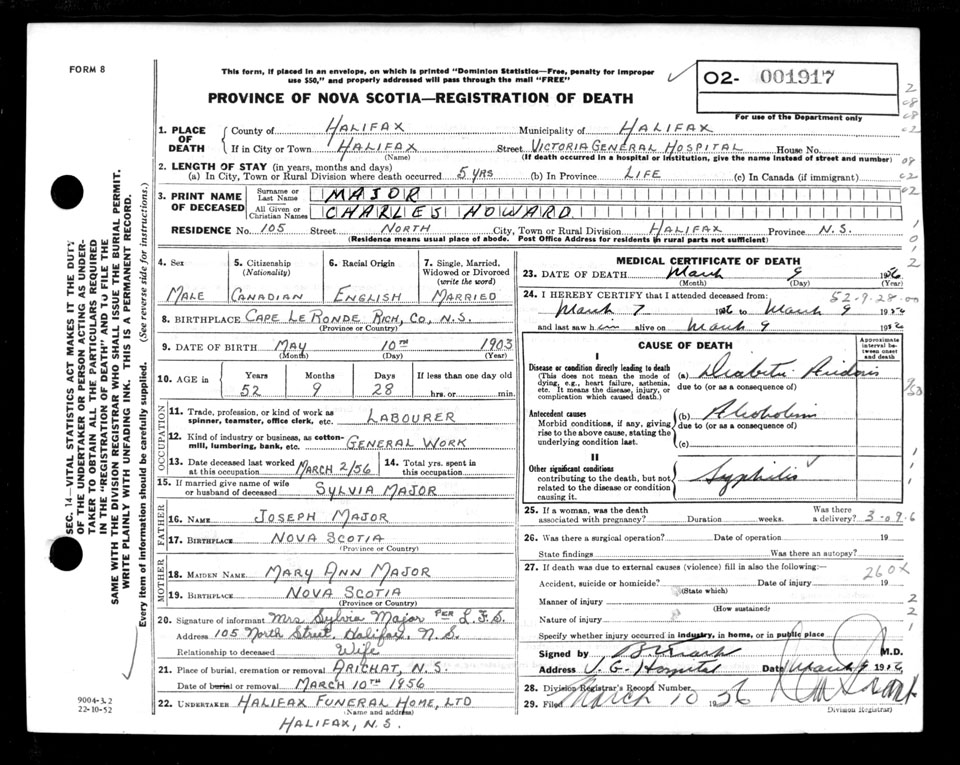 FORM 8
This form, if placed in an envelope, on which is printed "Dominion Statistics—Free, penalty for improper
use $50," and properly addressed will pass through the mail "FREE"
O2- 001917
For use of the Department only
PROVINCE OF NOVA SCOTIA—REGISTRATION OF DEATH
1. PLACE OF DEATH { County of HALIFAX Municipality of HALIFAX
If in City or Town HALIFAX Street VICTORIA GENERAL HOSPITAL House No.
(Name) (If death occurred in a hospital or institution, give the name instead of street and number)
2. LENGTH OF STAY (in years, months and days)
(a) In City, Town or Rural Division where death occurred 5 YRS (b) In Province LIFE (c) In Canada (if immigrant)
3. PRINT NAME OF DECEASED { Surname or Last Name MAJOR
All Given or Christian Names CHARLES HOWARD
RESIDENCE No. 105 Street NORTH City, Town or Rural Division HALIFAX Province N.S.
(Residence means usual place of abode. Post Office Address for residents in rural parts not sufficient)
4. Sex
MALE
5. Citizenship
(Nationality)
CANADIAN
6. Racial Origin
ENGLISH
7. Single, Married,
Widowed or Divorced
(write the word)
MARRIED
8. BIRTHPLACE CAPE LE RONDE RICH, CO, N.S.
(Province or Country)
9. DATE OF BIRTH MAY 10TH 1903
(Month) (Day) (Year)
10. AGE in Years Months Days If less than one day old
52 9 28 hrs. or min.
OCCUPATION
11. Trade, profession, or kind of work as
spinner, teamster, office clerk, etc. LABOURER
12. Kind of industry or business, as cotton-
mill, lumbering, bank, etc. GENERAL WORK
13. Date deceased last worked
at this occupation MARCH 2/56
14. Total yrs. spent in
this occupation
15. If married give name of wife
or husband of deceased SYLVIA MAJOR
FATHER
16. NAME JOSEPH MAJOR
17. BIRTHPLACE NOVA SCOTIA
(Province or Country)
MOTHER
18. MAIDEN NAME MARY ANN MAJOR
19. BIRTHPLACE NOVA SCOTIA
(Province or Country)
20. Signature of informant Mrs Sylvia Major PER L.F.S.
Address 105 North Street, Halifax, N.S.
Relationship to deceased Wife
21. Place of burial, cremation or removal ARICHAT, N.S.
Date of burial or removal MARCH 10TH 1956
22. UNDERTAKER HALIFAX FUNERAL HOME, LTD
(Name and address)
HALIFAX, N.S.
MEDICAL CERTIFICATE OF DEATH
23. DATE OF DEATH March 9 1956
(Month) (Day) (Year)
52-9-28-00
24. I HEREBY CERTIFY that I attended deceased from:
March 7 1956 to March 9 1956
and last saw him alive on March 9 1956
CAUSE OF DEATH
Approximate interval between onset and death
I
Disease or condition directly leading to death
(This does not mean the mode of
dying, e.g., heart failure, asthenia,
etc. It means the disease, injury, or
complication which caused death.)
(a) Diabetic Acidosis
due to (or as a consequence of)
Antecedent causes
Morbid conditions, if any, giving
rise to the above cause, stating the
underlying condition last.
(b) Alcoholism
due to (or as a consequence of)
(c)
II
Other significant conditions
contributing to the death, but not
related to the disease or condition
causing it.
Syphilis
25. If a woman, was the death
associated with pregnancy? Duration weeks. Was there
a delivery? 3-09-6
26. Was there a surgical operation? Date of operation 19
State findings Was there an autopsy?
27. If death was due to external causes (violence) fill in also the following:—
260X
Accident, suicide or homicide? Date of injury 19
(State which)
Manner of injury
(How sustained)
Nature of injury
Specify whether injury occurred in industry, in home, or in public place
Signed by M.D.
Address V. G. Hospital Date March 9 1956
28. Division Registrar's Record Number
29. Filed March 10 1956
Division Registrar)
SEC. 14—VITAL STATISTICS ACT MAKES IT THE DUTY
OF THE UNDERTAKER OR PERSON ACTING AS UNDER-
TAKER TO OBTAIN ALL THE PARTICULARS REQUIRED
IN THE "REGISTRATION OF DEATH" AND TO FILE THE
SAME WITH THE DIVISION REGISTRAR WHO SHALL ISSUE THE BURIAL PERMIT.
WRITE PLAINLY WITH UNFADING INK. THIS IS A PERMANENT RECORD.
Every item of information should be carefully supplied. (See reverse side for instructions.)
9004-3.2
22-10-52